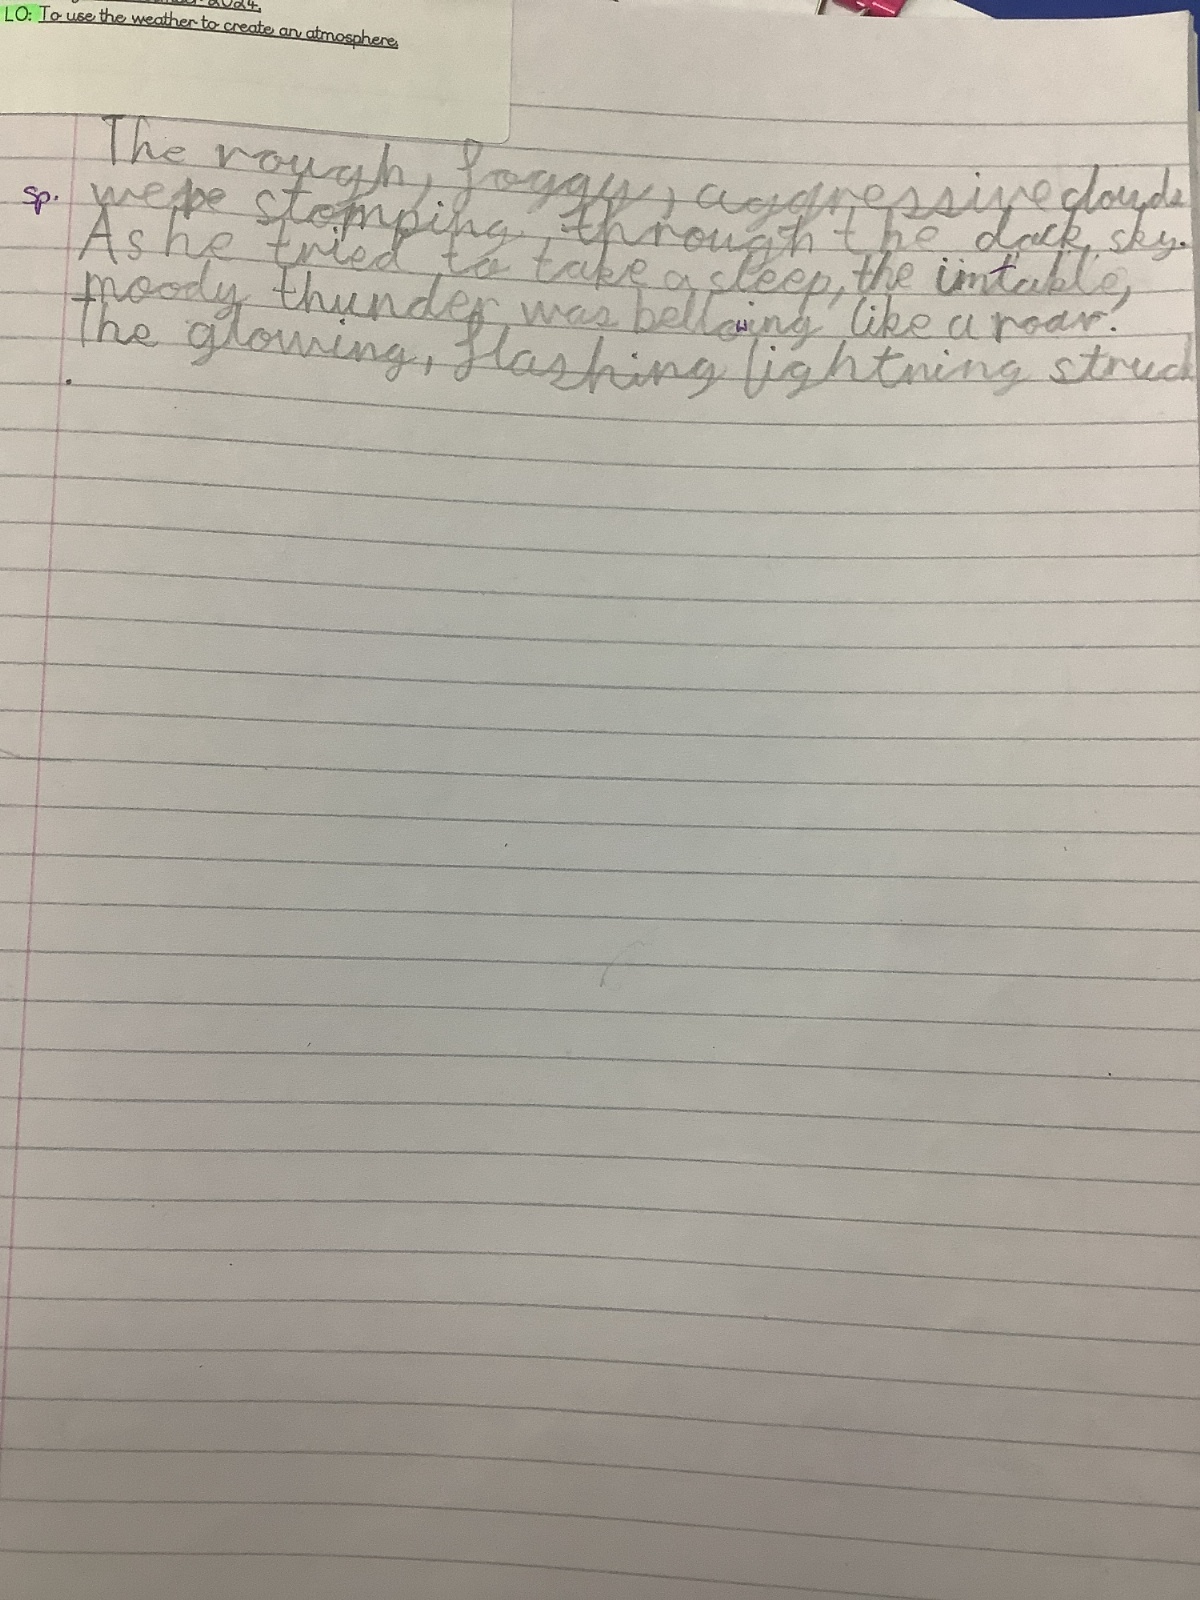 2024.
LO: To use the weather to create an atmosphere.
The rough, foggy, aggressive clouds
sp. were stomping through the dark sky.
As he tried to take a sleep, the imtable,
moody thunder was bellowing like a roar.
The glowing, flashing lightning struck
.